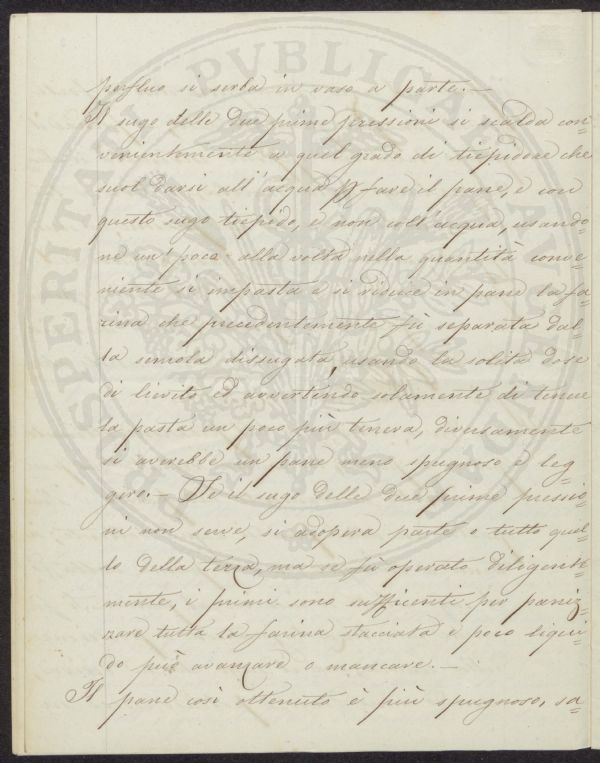 perfluo si serba in vaso a parte. —
Il sugo delle due prime pressioni si scalda con=
venientemente a quel grado di tiepidore che
suol darsi all'acqua p fare il pane, e con
questo sugo tiepido, e non coll'acqua, usando=
ne un poco alla volta nella quantità conve=
niente si impasta e si riduce in pane la fa=
rina che precedentemente fù separata dal=
la semola dissugata, usando la solita dose
di lievito ed avvertendo solamente di tener
la pasta un poco più tenera, diversamente
si averebbe un pane meno spugnoso e leg=
gero. — Se il sugo delle due prime pressio=
ni non serve, si adopera parte o tutto quel=
lo della terza, ma se fù operato diligente=
mente, i primi sono sufficenti per paniz=
zare tutta la farina stacciata e poco liqui=
do può avanzare o mancare. —
Il pane così ottenuto è più spugnoso, sa=
PROSPERITATI PVBLICAE AVGENDAE